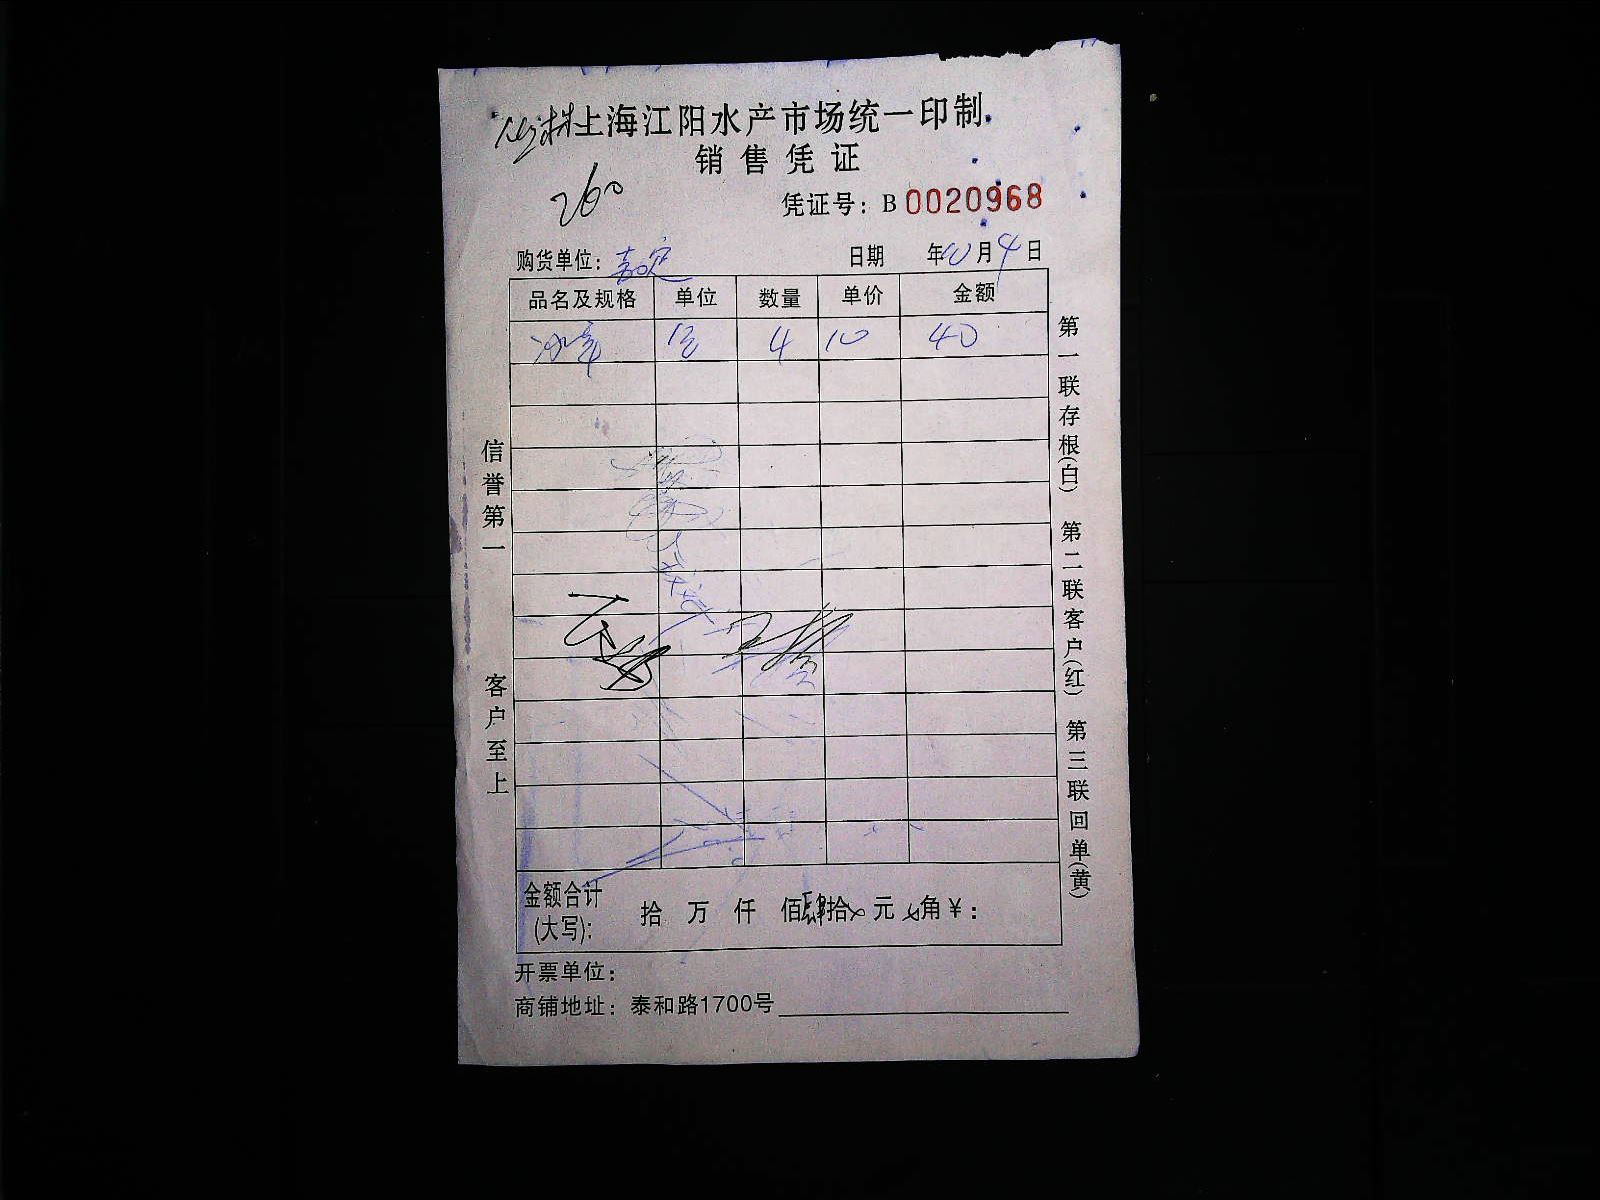 上海江阳水产市场统一印制
销售凭证
260
凭证号：B 0020968
购货单位：嘉定 日期 年 月4日
品名及规格 单位 数量 单价 金额
4 10 40
信誉第一
客户至上
第一联存根(白) 第二联客户(红) 第三联回单(黄)
金额合计
(大写)： 拾 万 仟 佰肆拾 元 角¥：
开票单位：
商铺地址：泰和路1700号